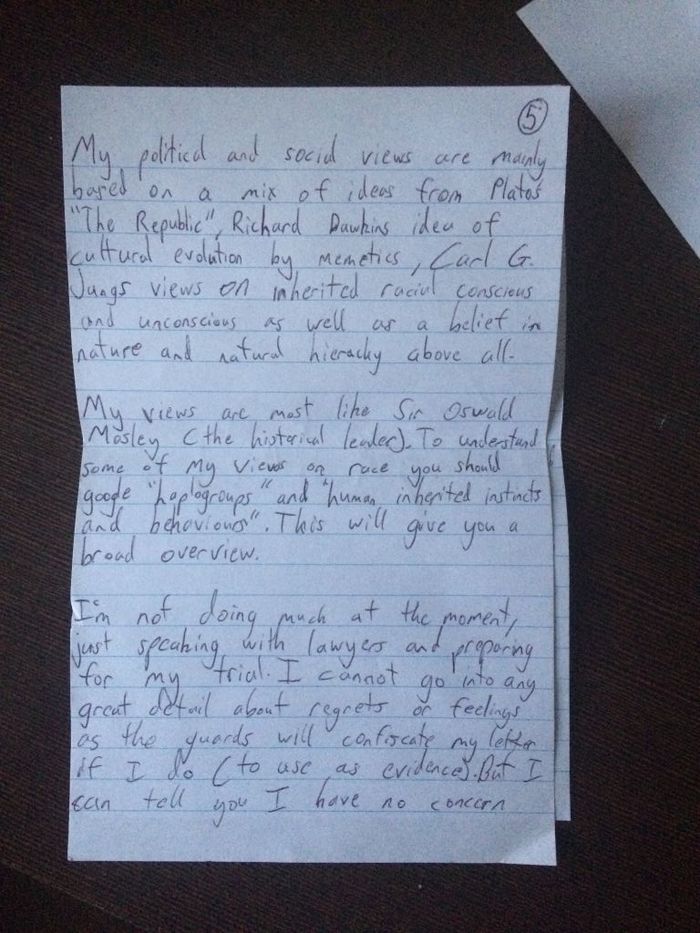 5
My political and social views are mainly
based on a mix of ideas from Platos
"The Republic", Richard Dawkins idea of
cultural evolution by memetics, Carl G.
Jungs views on inherited racial conscious
and unconscious as well as a belief in
nature and natural hierachy above all.
My views are most like Sir Oswald
Mosley (the historical leader). To understand
some of my views on race you should
google "haplogroups" and "human inherited instincts
and behaviours". This will give you a
broad overview.
I'm not doing much at the moment,
just speaking with lawyers and preparing
for my trial. I cannot go into any
great detail about regrets or feelings
as the guards will confiscate my letter
if I do (to use as evidence). But I
can tell you I have no concern